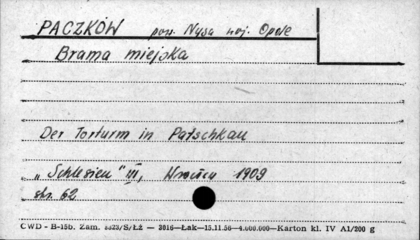 PACZKÓW pow. Nysa woj. Opole
Brama miejska
Der Torturm in Patschkau
„Schlesien" III, Wrocław 1909
str. 62
CWD - B-15b. Zam. 8323/S/Łż — 3016—Łak—15.11.56—4.000.000—Karton kl. IV A1/200 g